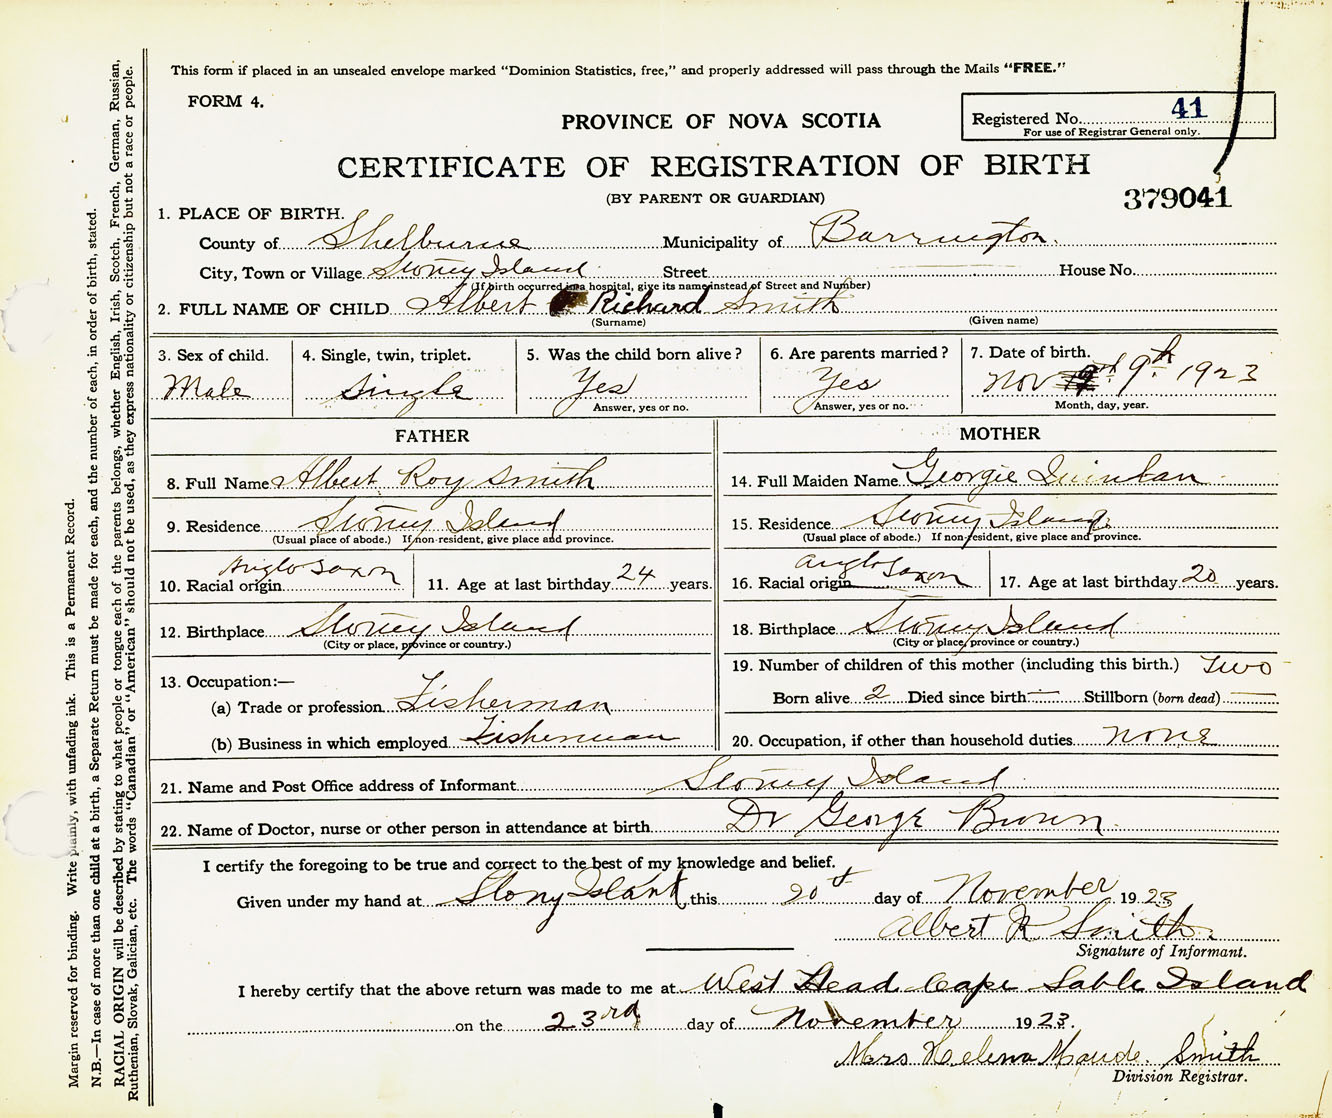 This form if placed in an unsealed envelope marked "Dominion Statistics, free," and properly addressed will pass through the Mails "FREE."
FORM 4.
Registered No. 41
For use of Registrar General only.
PROVINCE OF NOVA SCOTIA
CERTIFICATE OF REGISTRATION OF BIRTH
(BY PARENT OR GUARDIAN)
379041
1. PLACE OF BIRTH.
County of Shelburne Municipality of Barrington.
City, Town or Village Stoney Island Street House No.
(If birth occurred in a hospital, give its name instead of Street and Number)
2. FULL NAME OF CHILD Albert Richard Smith
(Surname) (Given name)
3. Sex of child. 4. Single, twin, triplet. 5. Was the child born alive? 6. Are parents married? 7. Date of birth.
Male Single Yes Yes Nov 9th 1923
Answer, yes or no. Answer, yes or no. Month, day, year.
FATHER MOTHER
8. Full Name Albert Roy Smith 14. Full Maiden Name Georgie Quinlan
9. Residence Stoney Island 15. Residence Stoney Island
(Usual place of abode.) If non-resident, give place and province. (Usual place of abode.) If non-resident, give place and province.
10. Racial origin Anglo Saxon 11. Age at last birthday 24 years. 16. Racial origin Anglo Saxon 17. Age at last birthday 20 years.
12. Birthplace Stoney Island 18. Birthplace Stoney Island
(City or place, province or country.) (City or place, province or country.)
13. Occupation:— 19. Number of children of this mother (including this birth.) Two
(a) Trade or profession Fisherman Born alive 2 Died since birth — Stillborn (born dead) —
(b) Business in which employed Fisherman 20. Occupation, if other than household duties None
21. Name and Post Office address of Informant Stoney Island
22. Name of Doctor, nurse or other person in attendance at birth Dr George Brown
I certify the foregoing to be true and correct to the best of my knowledge and belief.
Given under my hand at Stony Island this 20th day of November 1923
Albert R Smith.
Signature of Informant.
I hereby certify that the above return was made to me at West Head Cape Sable Island
on the 23rd day of November 1923.
Mrs Helena Maude. Smith
Division Registrar.
Margin reserved for binding. Write plainly, with unfading ink. This is a Permanent Record.
N.B.—In case of more than one child at a birth, a Separate Return must be made for each, and the number of each, in order of birth, stated.
RACIAL ORIGIN will be described by stating to what people or tongue each of the parents belongs, whether English, Irish, Scotch, French, German, Russian,
Ruthenian, Slovak, Galician, etc. The words "Canadian" or "American" should not be used, as they express nationality or citizenship but not a race or people.